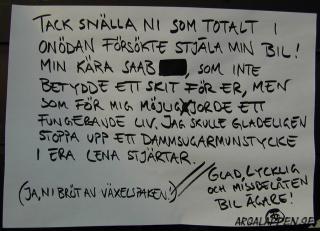 TACK SNÄLLA NI SOM TOTALT I
ONÖDAN FÖRSÖKTE STJÄLA MIN BIL!
MIN KÄRA SAAB , SOM INTE
BETYDDE ETT SKIT FÖR ER, MEN
SOM FÖR MIG MÖJLIGJORDE ETT
FUNGERANDE LIV. JAG SKULLE GLADELIGEN
STOPPA UPP ETT DAMMSUGARMUNSTYCKE
I ERA LENA STJÄRTAR.
(JA, NI BRÖT AV VÄXELSPAKEN!)
GLAD, LYCKLIG
OCH MISSBELÅTEN
BILÄGARE!
ARGALAPPEN.SE